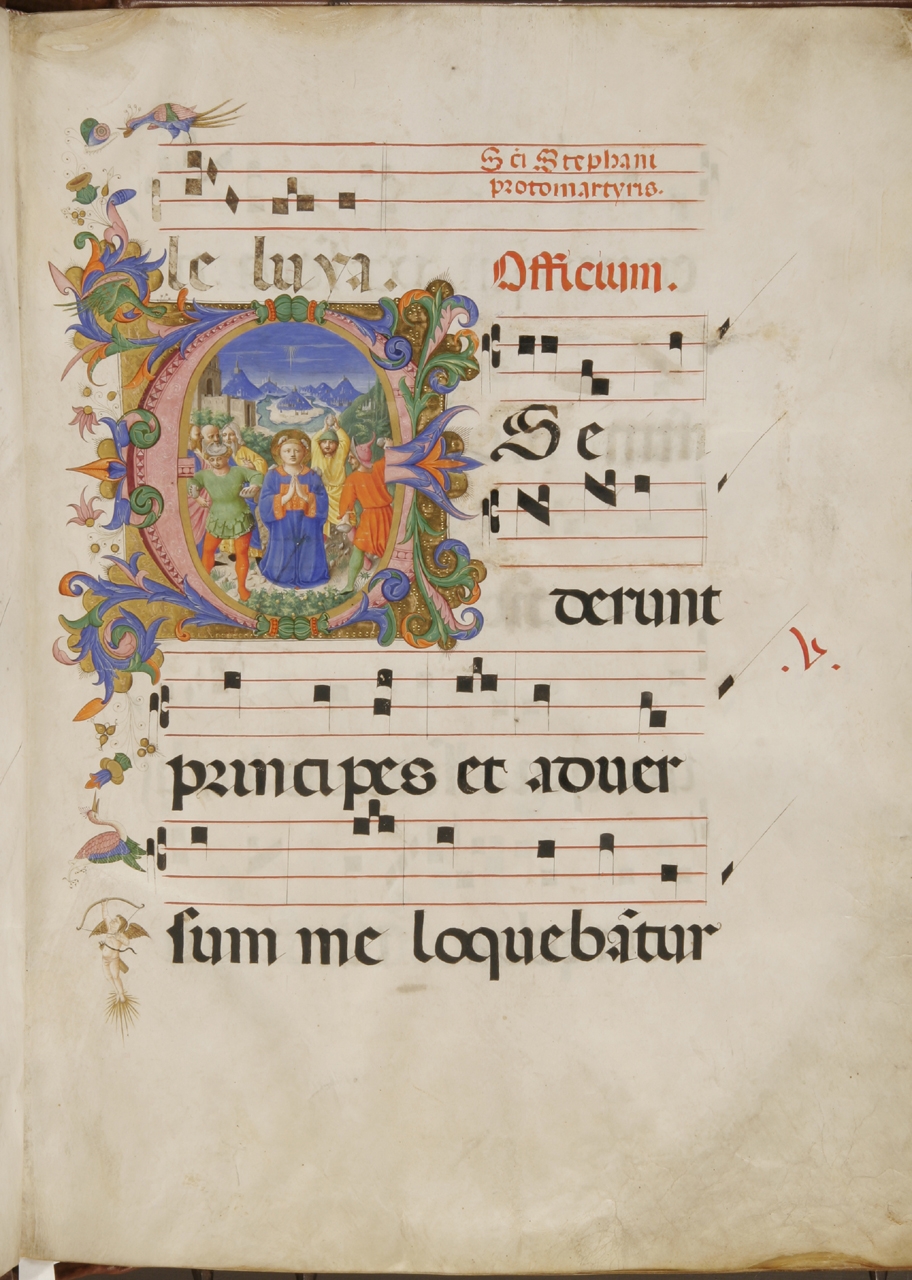 Sc̄i Stephani
protomartyris.
le luya. Officium.
Se
derunt
principes et aduer
sum me loquebãtur
.V.